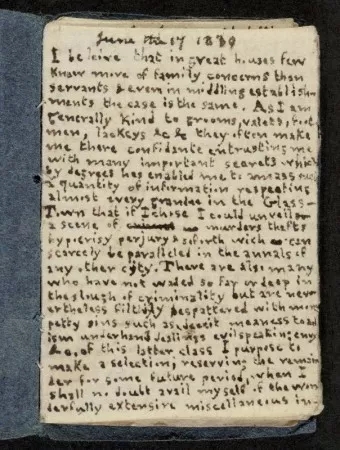 June the 17 1830
I beleive that in great houses few
know more of family concerns than
servants & even in middling establish
ments the case is the same. As I am
generally kind to grooms, valets, foot
men, lackeys &c &c they often make
me there confidante entrusting me
with many important secrets which
by degrees has enabled me to amass such
a quantity of information respecting
almost every grandee in the Glass-
Town that if I chose I could unveil
a scene of murders thefts
hypocrisy perjury & so forth wich can
scarcely be paralleled in the annals of
any other city. There are also many
who have not waded so far or deep in
the slough of criminality but are nev-
ertheless filthily bespattered with more
petty sins such as deceit meaness toad
ism underhand dealings evil speaking envy
&c. of this latter class I purpose to
make a selection; reserving the remain
der for some future period, when I
shall no doubt avail myself of the won
derfully extensive miscellaneous in-